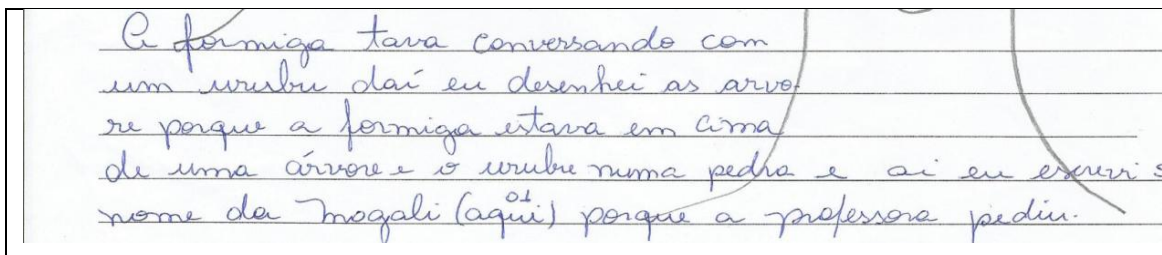 A formiga tava conversando com
um urubu daí eu desenhei as arvo-
re porque a formiga estava em cima
de uma árvore e o urubu numa pedra e ai eu escrevi
nome da Magali (aqui) porque a professora pediu.
01